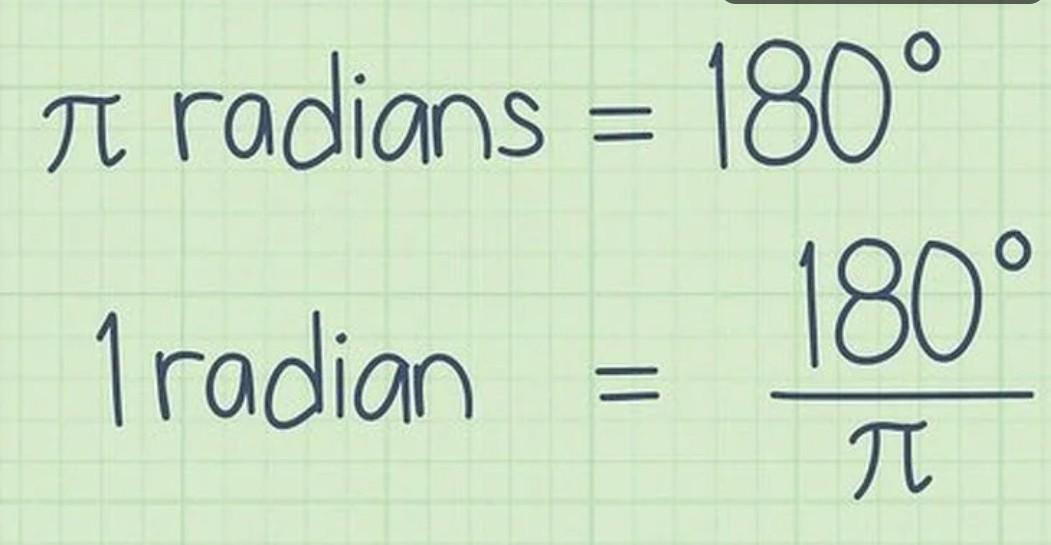 π radians = 180°
1 radian = 180°/π